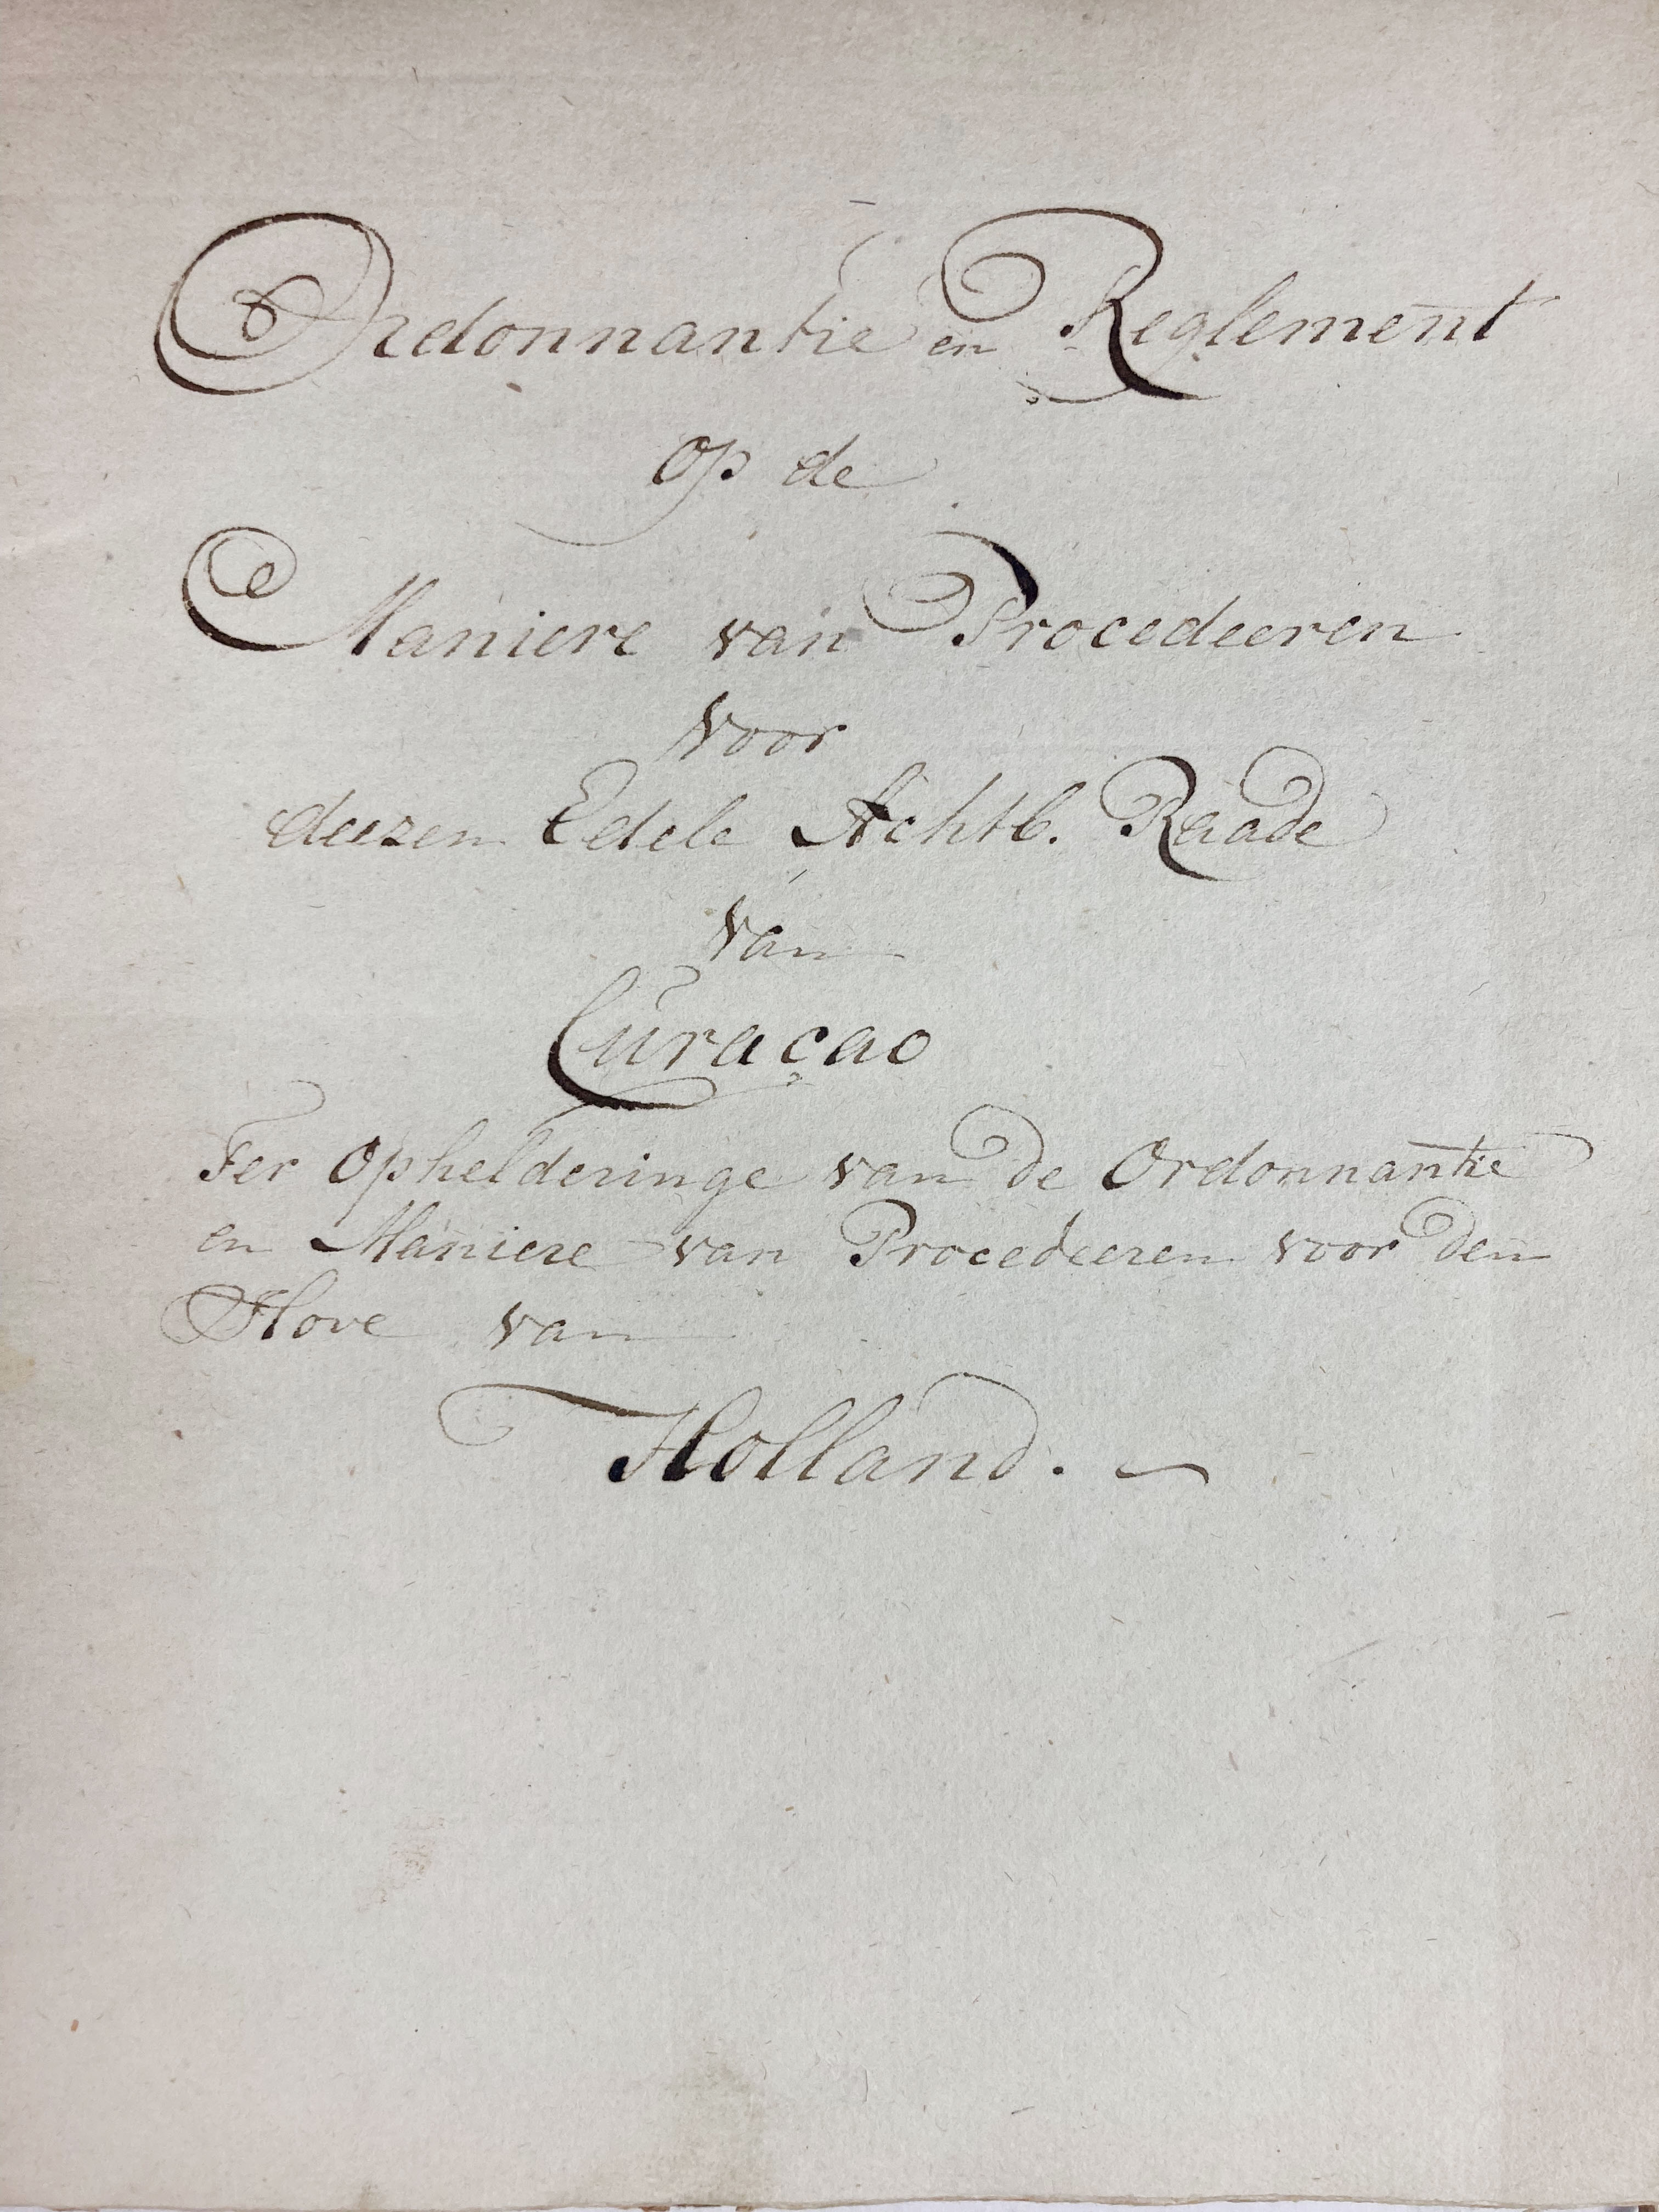 Ordonnantie en Reglement
op de
Maniere van Procedeeren
voor
deezen Edele Achtb. Raade
van
Curaçao
Ter Ophelderinge van de Ordonnantie
en Maniere van Procedeeren voor den
Hove van
Holland.